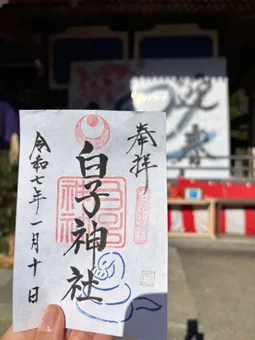 奉拝
白子神社
令和七年一月十日
迎春